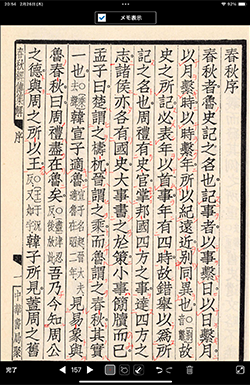 メモ表示
春秋序
春秋者魯史記之名也記事者以事繫日以日繫月
以月繫時以時繫年所以紀遠近別同異也故
史之所記必表年以首事年有四時故錯舉以爲所
記之名也周禮有史官掌邦國四方之事達四方之
志諸侯亦各有國史大事書之於策小事簡牘而已
孟子曰楚謂之檮杌晉謂之乘而魯謂之春秋其實
一也韓宣子適魯見易象與
魯春秋曰周禮盡在魯矣吾乃今知周公
之德與周之所以王韓子所見蓋周之舊
序
一
中華書局聚
完了
157